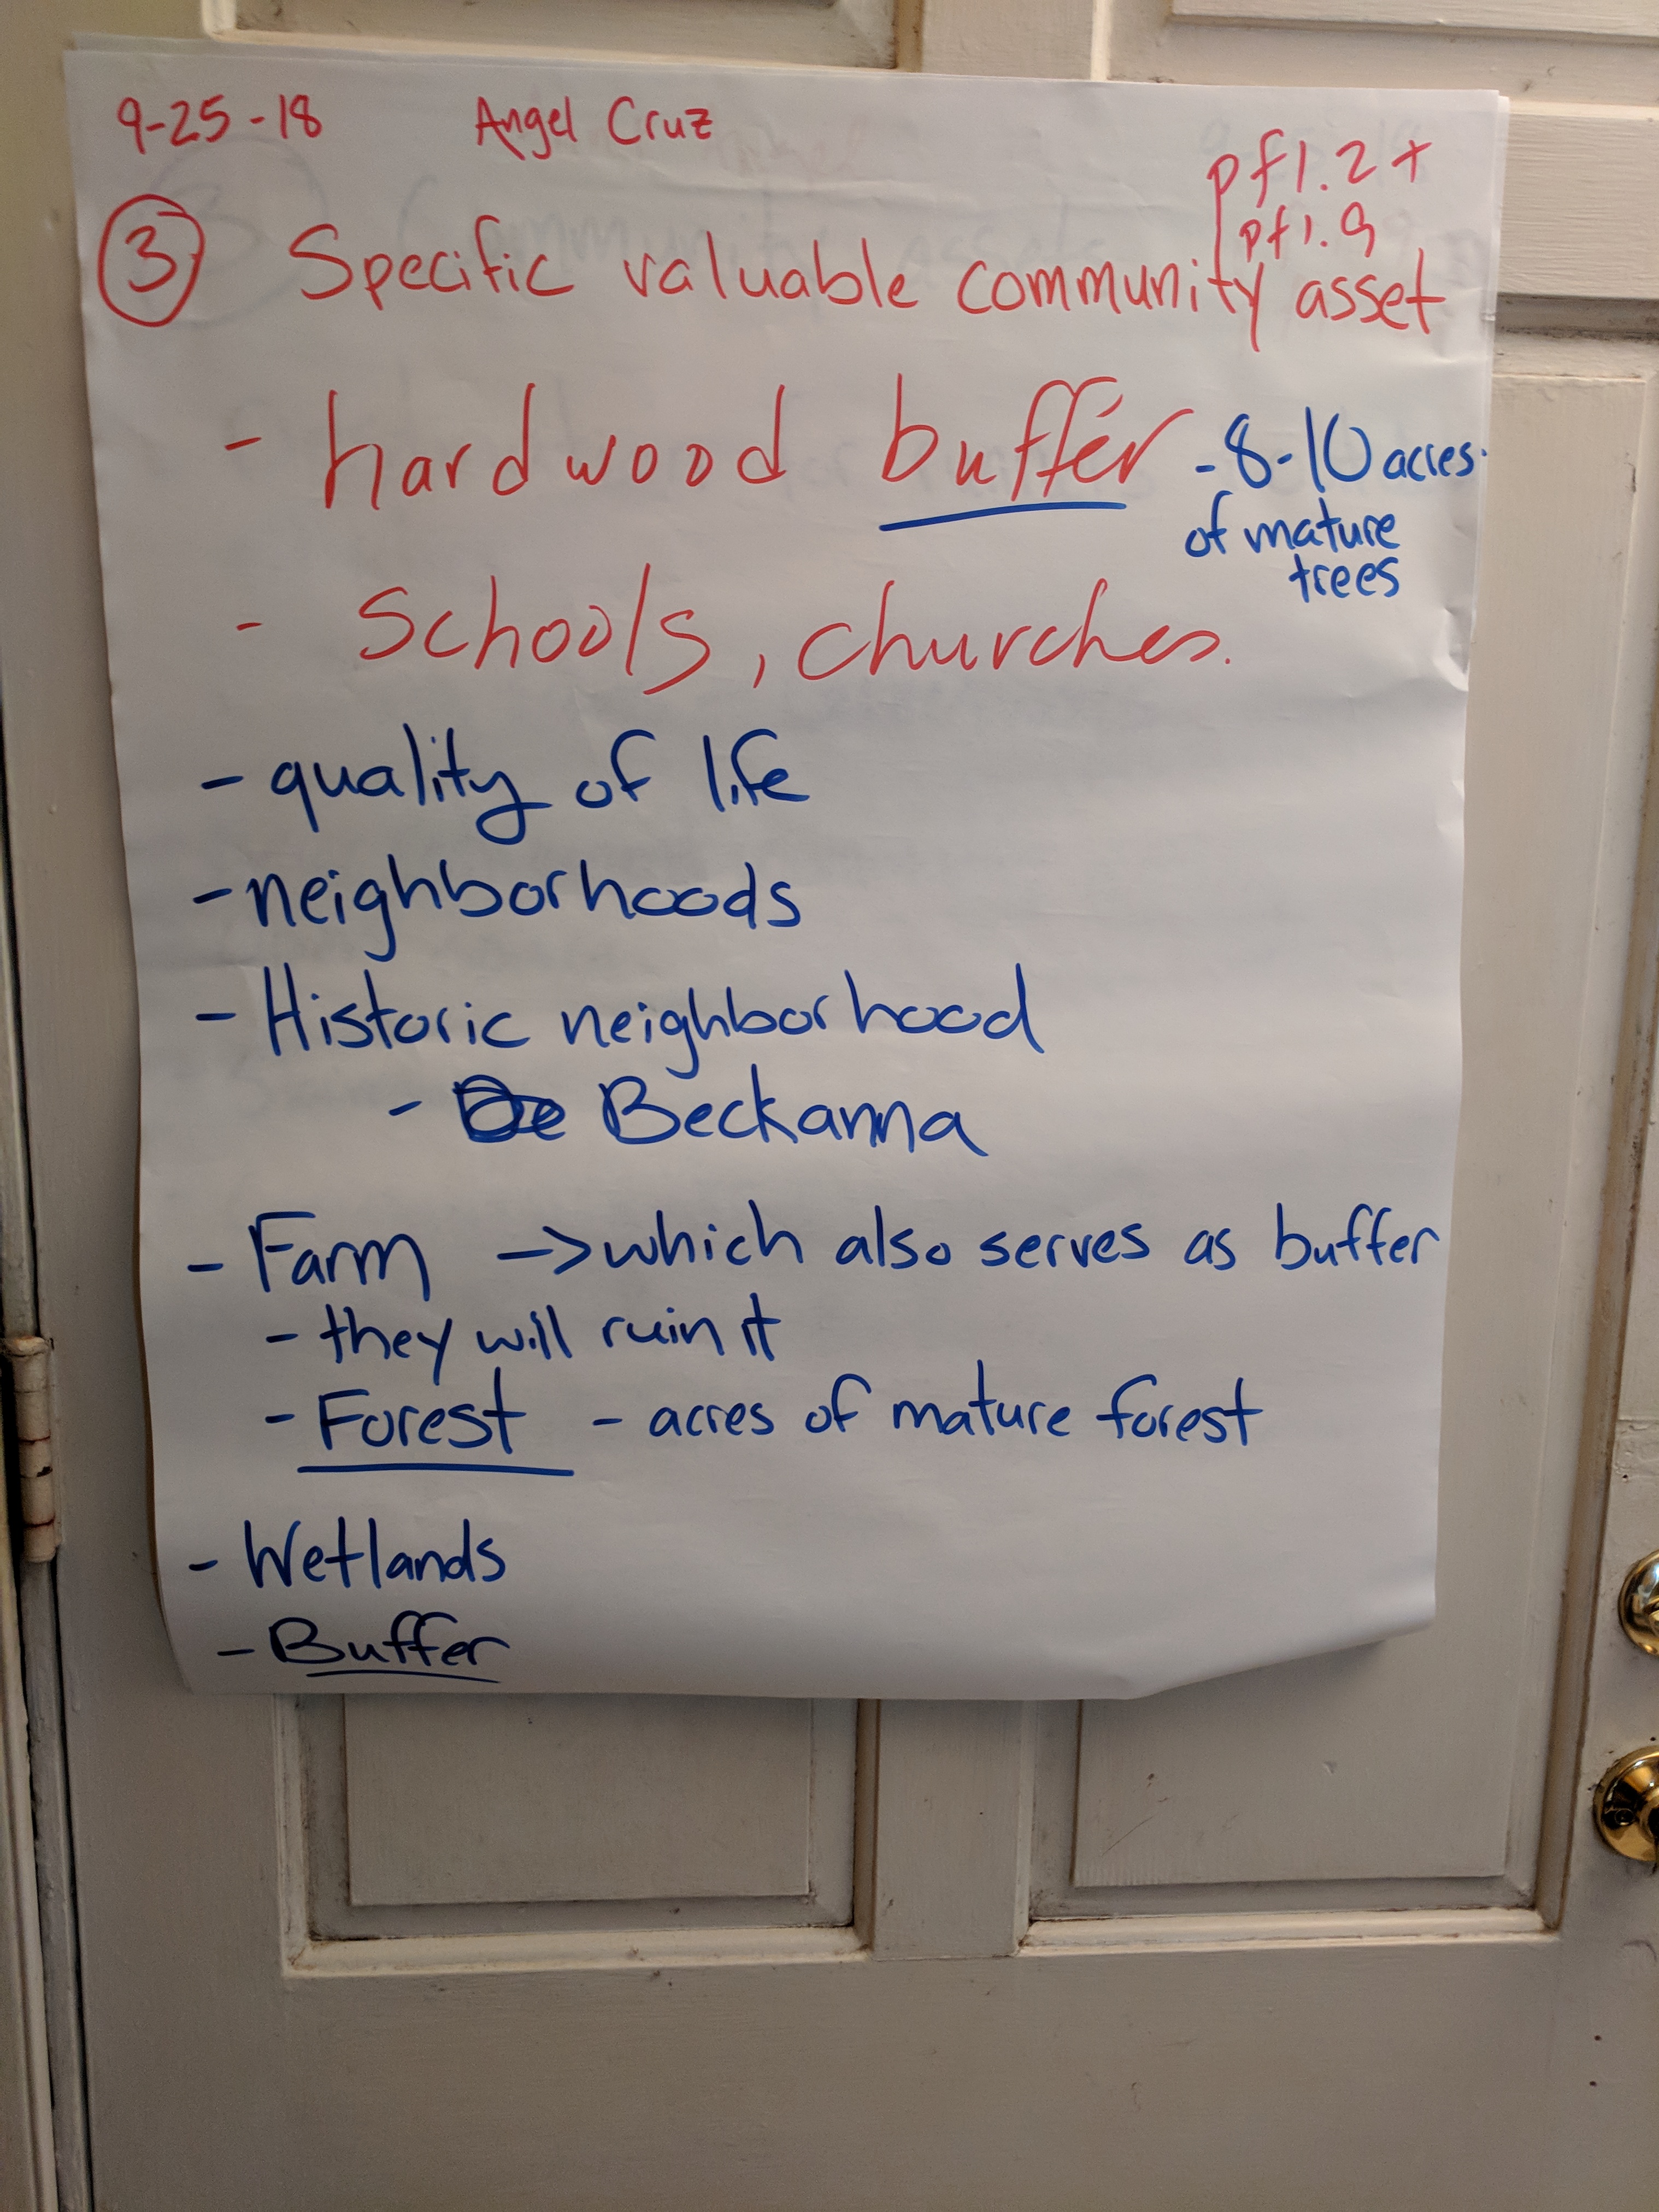 9-25-18 Angel Cruz
pf1.2 +
pf1.9
3 Specific valuable community asset
- hardwood buffer - 8-10 acres
of mature
trees
- Schools, churches.
- quality of life
- neighborhoods
- Historic neighborhood
- Beckanna
- Farm -> which also serves as buffer
- they will ruin it
- Forest - acres of mature forest
- Wetlands
- Buffer